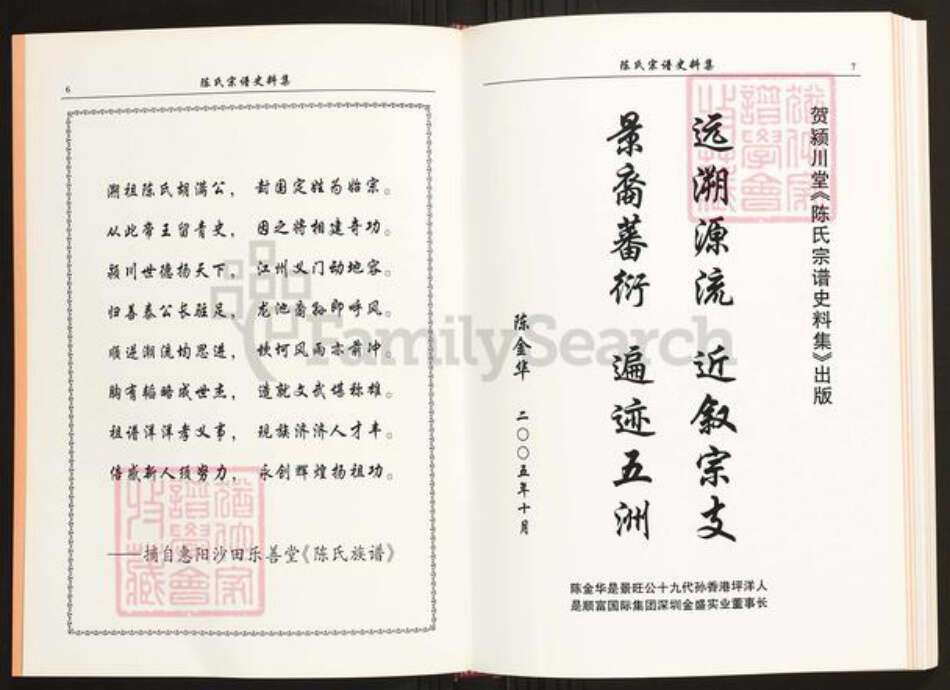 6
陈氏宗谱史料集
溯祖陈氏胡满公，封国定姓为始宗。
从此帝王留青史，因之将相建奇功。
颍川世德扬天下，江州义门动地容。
归善泰公长驻足，龙池裔孙即呼风。
顺逆潮流均思进，坎坷风雨亦前冲。
胸有韬略成世杰，造就文武堪称雄。
祖谱洋洋孝义事，现族济济人才丰。
倍感新人须努力，永创辉煌扬祖功。
——摘自惠阳沙田乐善堂《陈氏族谱》
陈氏宗谱史料集
7
贺颍川堂《陈氏宗谱史料集》出版
远溯源流 近叙宗支
景裔蕃衍 遍迹五洲
陈金华 二〇〇五年十月
陈金华是景旺公十九代孙香港坪洋人
是顺富国际集团深圳金盛实业董事长
FamilySearch